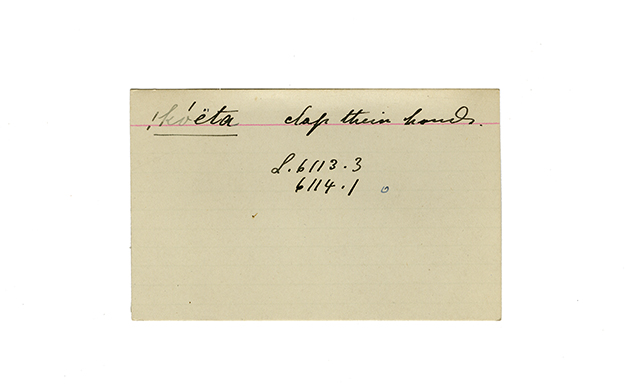 !kóëta clap their hands.
L. 6113.3
6114.1